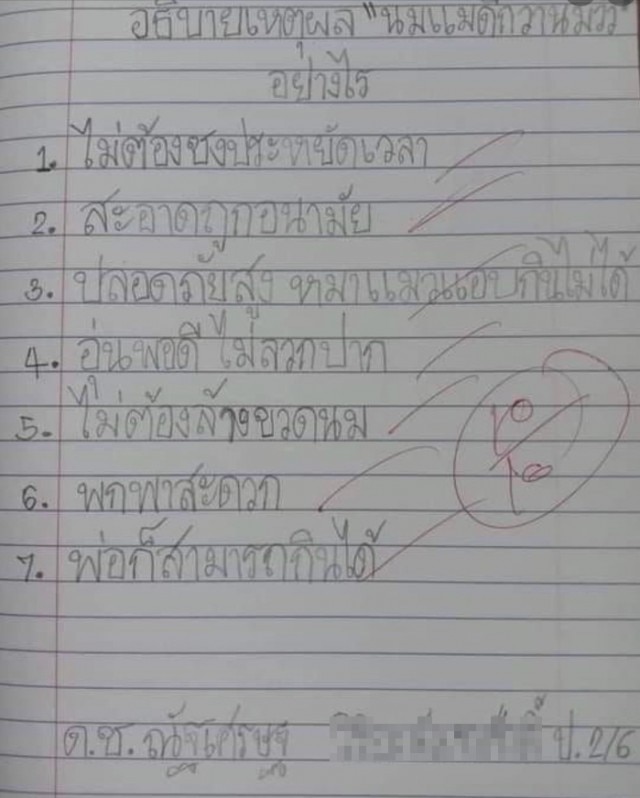 อธิบายเหตุผล "นมแม่ดีกว่านมวัว"
อย่างไร
1. ไม่ต้องชงประหยัดเวลา
2. สะอาดถูกอนามัย
3. ปลอดภัยสูง หมาแมวแอบกินไม่ได้
4. อุ่นพอดี ไม่ลวกปาก
5. ไม่ต้องล้างขวดนม
6. พกพาสะดวก
7. พ่อก็สามารถกินได้
๑๐
๑๐
ด.ช. ป.2/6